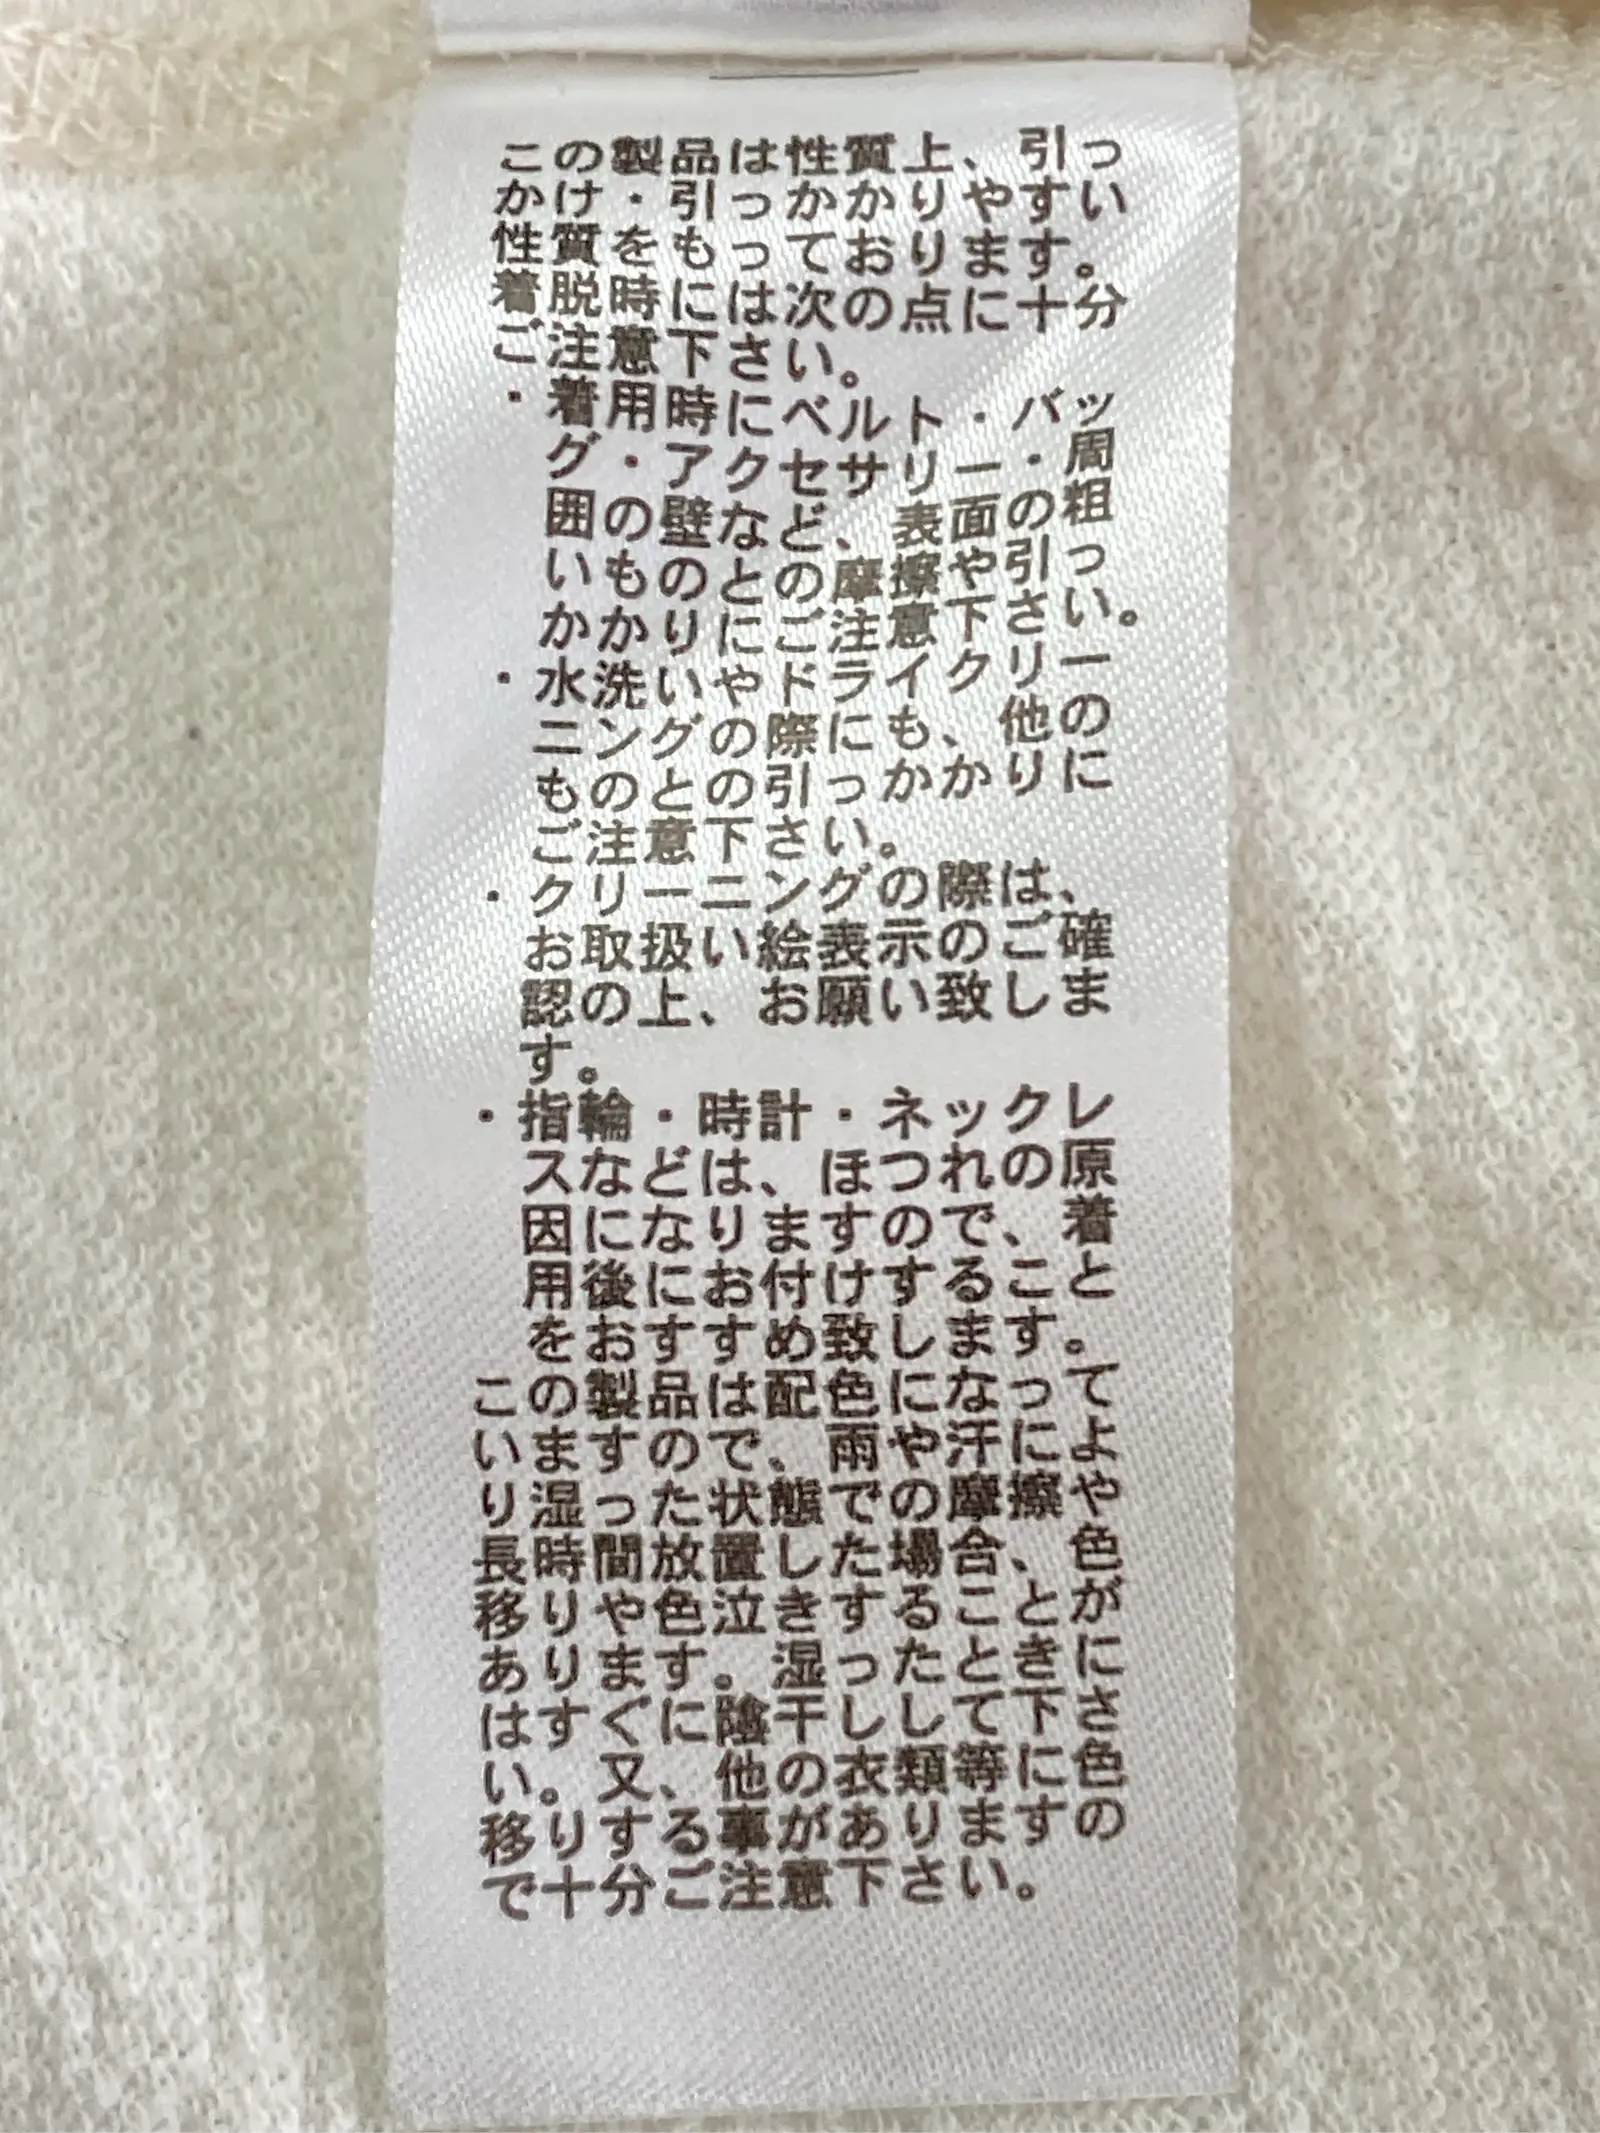 この製品は性質上、引っ
かけ・引っかかりやすい
性質をもっております。
着脱時には次の点に十分
ご注意下さい。
・着用時にベルト・バッ
グ・アクセサリー・周
囲の壁など、表面の粗
いものとの摩擦や引っ
かかりにご注意下さい。
・水洗いやドライクリー
ニングの際にも、他の
ものとの引っかかりに
ご注意下さい。
・クリーニングの際は、
お取扱い絵表示のご確
認の上、お願い致しま
す。
・指輪・時計・ネックレ
スなどは、ほつれの原
因になりますので、着
用後にお付けすること
をおすすめ致します。
この製品は配色になって
いますので、雨や汗によ
り湿った状態での摩擦や
長時間放置した場合、色
移りや色泣きすることが
あります。湿ったときに
はすぐに陰干しして下さ
い。又、他の衣類等に色
移りする事がありますの
で十分ご注意下さい。